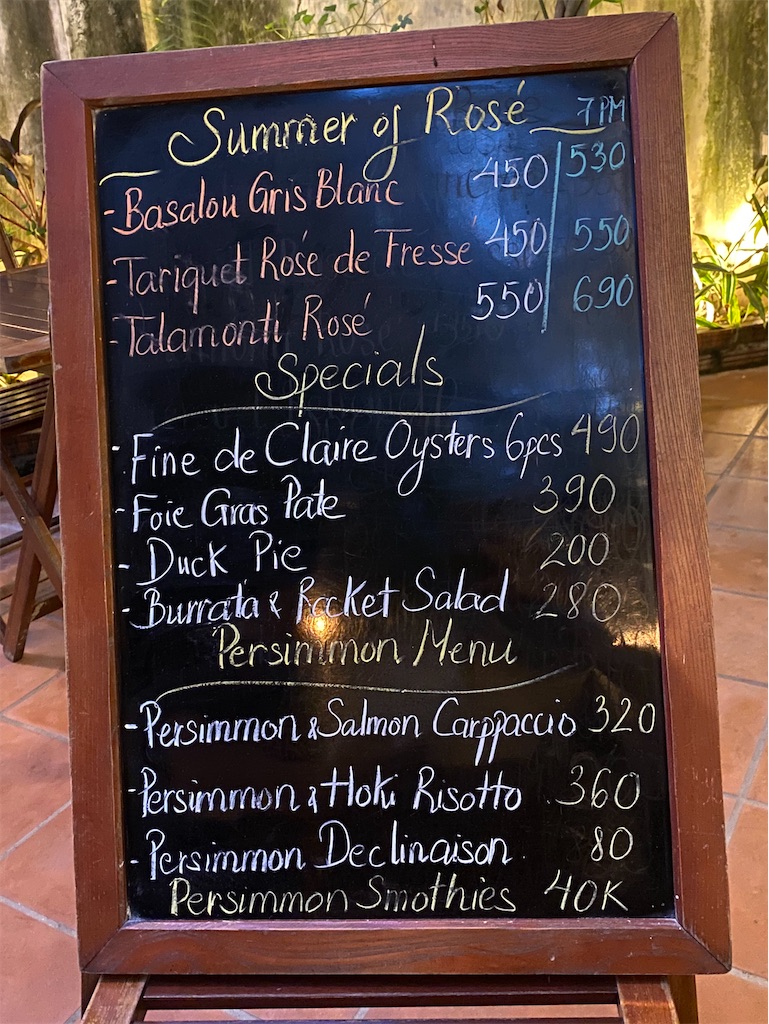 Summer of Rosé 7PM
- Basalou Gris Blanc 450 530
- Tariquet Rosé de Fressé 450 550
- Talamonti Rosé 550 690
Specials
- Fine de Claire Oysters 6pcs 490
- Foie Gras Pate 390
- Duck Pie 200
- Burrata & Rocket Salad 280
Persimmon Menu
- Persimmon & Salmon Carppaccio 320
- Persimmon & Hoki Risotto 360
- Persimmon Declinaison 80
Persimmon Smothies 40K